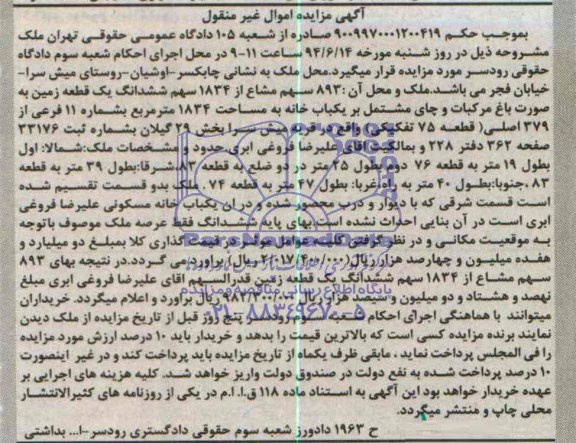 آگهی مزایده اموال غیر منقول
بموجب حکم ۹۰۰۹۹۷۰۰۰۱۲۰۰۴۱۹ صادره از شعبه ۱۰۵ دادگاه عمومی حقوقی تهران ملک
مشروحه ذیل در روز شنبه مورخه ۹۴/۶/۱۴ ساعت ۱۱-۹ در محل اجرای احکام شعبه سوم دادگاه
حقوقی رودسر مورد مزایده قرار میگیرد.محل ملک به نشانی چابکسر-اوشیان-روستای میش سرا-
خیابان فجر می باشد.ملک و محل آن :۸۹۳ سهم مشاع از ۱۸۳۴ سهم ششدانگ یک قطعه زمین به
صورت باغ مرکبات و چای مشتمل بر یکباب خانه به مساحت ۱۸۳۴ مترمربع بشماره ۱۱ فرعی از
۳۷۹ اصلی( قطعه ۷۵ تفکیکی) واقع در قریه میش سرا بخش ۲۹ گیلان بشماره ثبت ۳۳۱۷۶
صفحه ۳۶۲ دفتر ۲۲۸ و بمالکیت اقای علیرضا فروغی ابری.حدود و مشخصات ملک:شمالا: اول
بطول ۱۹ متر به قطعه ۷۶ دوم بطول ۲۵ متر در دو ضلع به قطعه ۸۳ .شرقا:بطول ۳۹ متر به قطعه
۸۳ .جنوبا:بطول ۴۰ متر به راه.غربا: بطول ۴۷ متر به قطعه ۷۴ .ملک بدو قسمت تقسیم شده
است قسمت شرقی که با دیوار و درب محصور شده و در ان یکباب خانه مسکونی علیرضا فروغی
ابری است در آن بنایی احداث نشده است.بهای پایه ششدانگ فقط عرصه ملک موصوف باتوجه
به موقعیت مکانی و در نظر گرفتن کلیه عوامل موثر در قیمت گذاری کلا بمبلغ دو میلیارد و
هفده میلیون و چهارصد هزار ریال(۲/۰۱۷/۴۰۰/۰۰۰ ریال) براورد می گردد.در نتیجه بهای ۸۹۳
سهم مشاع از ۱۸۳۴ سهم ششدانگ یک قطعه زمین قدرالسهم اقای علیرضا فروغی ابری مبلغ
نهصد و هشتاد و دو میلیون و سیصد هزار ریال ۹۸۲/۳۰۰/۰۰۰ ریال براورد و اعلام میگردد. خریداران
میتوانند با هماهنگی اجرای احکام شعبه سوم رودسر پنج روز قبل از تاریخ مزایده از ملک دیدن
نمایند برنده مزایده کسی است که بالاترین قیمت را بدهد و خریدار باید ۱۰ درصد ارزش مورد مزایده
را فی المجلس پرداخت نماید ، مابقی ظرف یکماه از تاریخ مزایده باید پرداخت کند و در غیر اینصورت
۱۰ درصد پرداخت شده به نفع دولت در صندوق دولت واریز خواهد شد. کلیه هزینه های اجرایی بر
عهده خریدار خواهد بود این آگهی به استناد ماده ۱۱۸ ق.ا. ا.م در یکی از روزنامه های کثیرالانتشار
محلی چاپ و منتشر میگردد.
ح ۱۹۶۳ دادورز شعبه سوم حقوقی دادگستری رودسر-ا... بداشتی
پایگاه اطلاع رسانی مناقصه و مزایده
۰۲۱-۸۸۳۴۹۶۷۰-۵